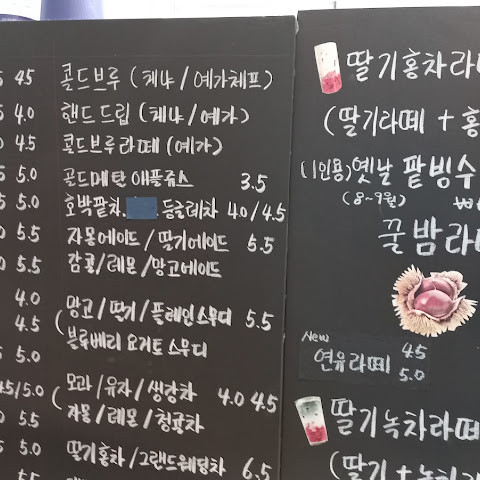 45 콜드브루 (케냐/예가체프)
4.0 핸드드립 (케냐/예가)
4.5 콜드브루라떼 (예가)
5.0 골드메달 애플쥬스 3.5
5.0 호박팥차. 둥굴레차 4.0/4.5
5.5 자몽에이드/딸기에이드 5.5
5.5 깔콩/레몬/망고에이드
4.0 망고/딸기/플레인스무디 5.5
4.5 블루베리 요거트 스무디
5.0
4.5/5.0 모과/유자/생강차 4.0 4.5
5.5 자몽/레몬/청귤차
5.0 딸기홍차/그랜드웨딩차 6.5
5.5
딸기홍차라
(딸기라떼 + 홍
(1인용) 옛날 팥빙수
(8~9월)
꿀밤라
New
연유라떼 45
5.0
딸기녹차라떼
(딸기+녹차라